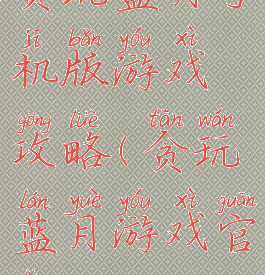 jī bǎn yóu xì
机版游戏
gōng lüè tān wán
攻略(贪玩
lán yuè yóu xì guān
蓝月游戏官